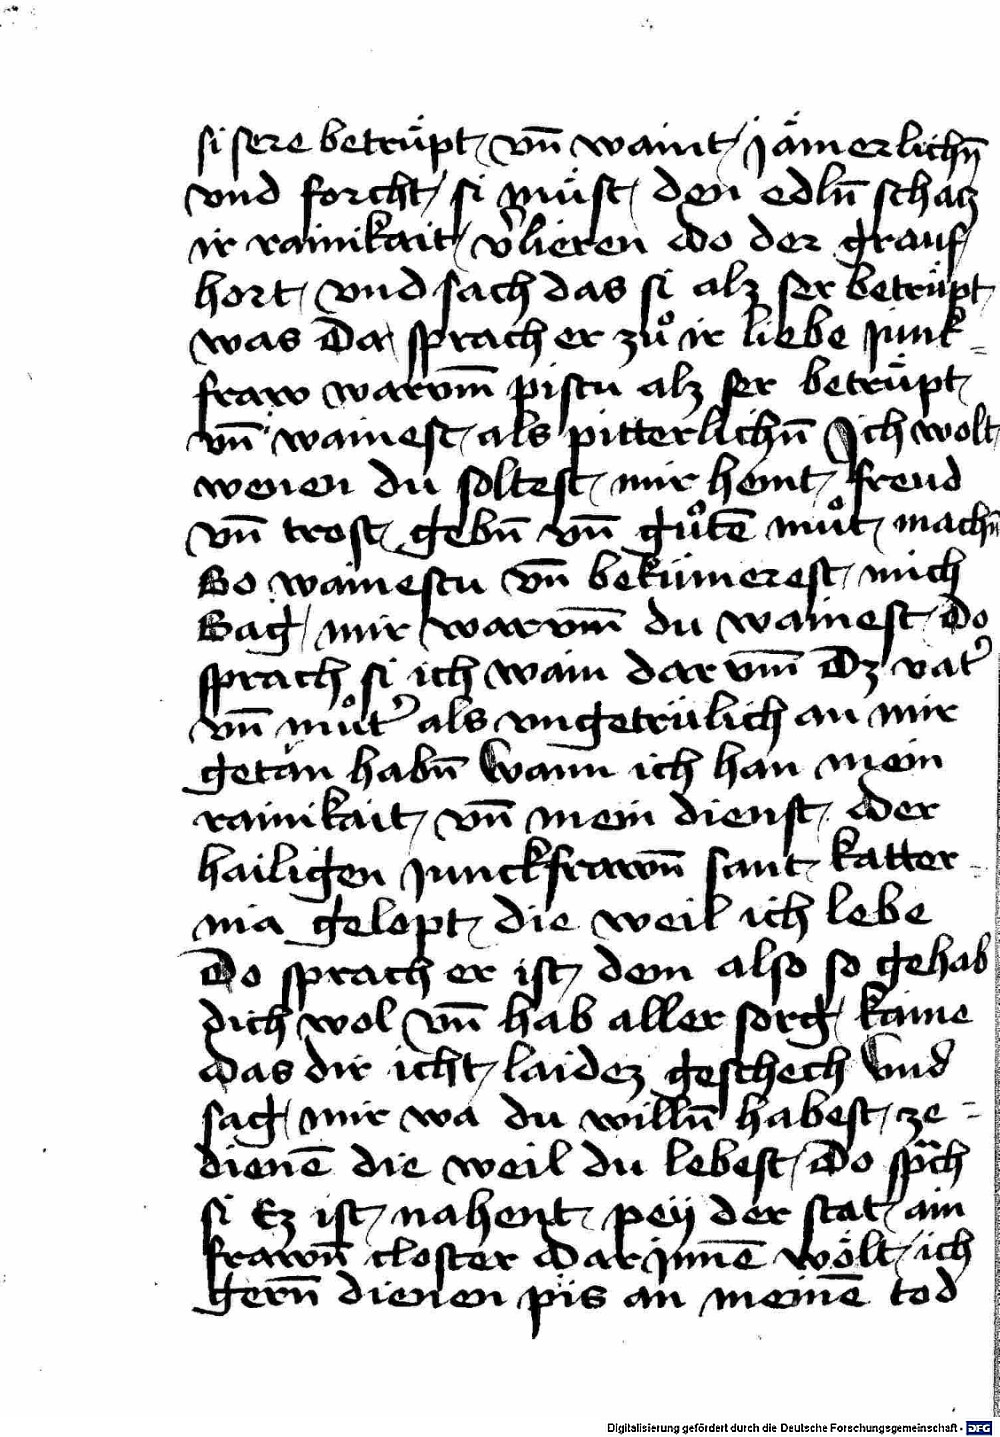 si sere betrǘpt vn̄ waint jämerlichn̄
vnd forcht si müst den edln̄ schatz
ir rainikait v̓lieren do der grauf
hort vnd sach das si alz ser betrǘpt
was Da sprach er zuͦ ir liebe junk=
fraw warvm̄ pistu alz ser betrǘpt
vn̄ wainest als pitterlichn̄ Ich wolt
wenen du soltest mir heint freud
vn̄ trost gebn̄ vn̄ guͦtē muͦt machn̄
So wainestu vn̄ bekümerest mich
Sag mir warvm̄ du wainest Do
sprach si ich wain darvm̄ Dz vat̓
vn̄ muͦt̓ als vngetrülich an mir
getän habn̄ Wann ich han mein
rainikait vn̄ mein dienst der
hailigen junckfrawn̄ sant katter=
nia gelopt die weil ich lebe
Do sprach er ist dem also so gehab
dich wol vn̄ hab aller sorg kaine
das dir icht laidez geschech Vnd
sag mir wa du willn̄ habest ze=
dienē die weil du lebest Do sp̄ch
si Ez ist nahent pey der stat ain
frawn̄ closter Dar jnnē wölt ich
gern̄ dienen pis an meinē tod
Digitalisierung gefördert durch die Deutsche Forschungsgemeinschaft - DFG